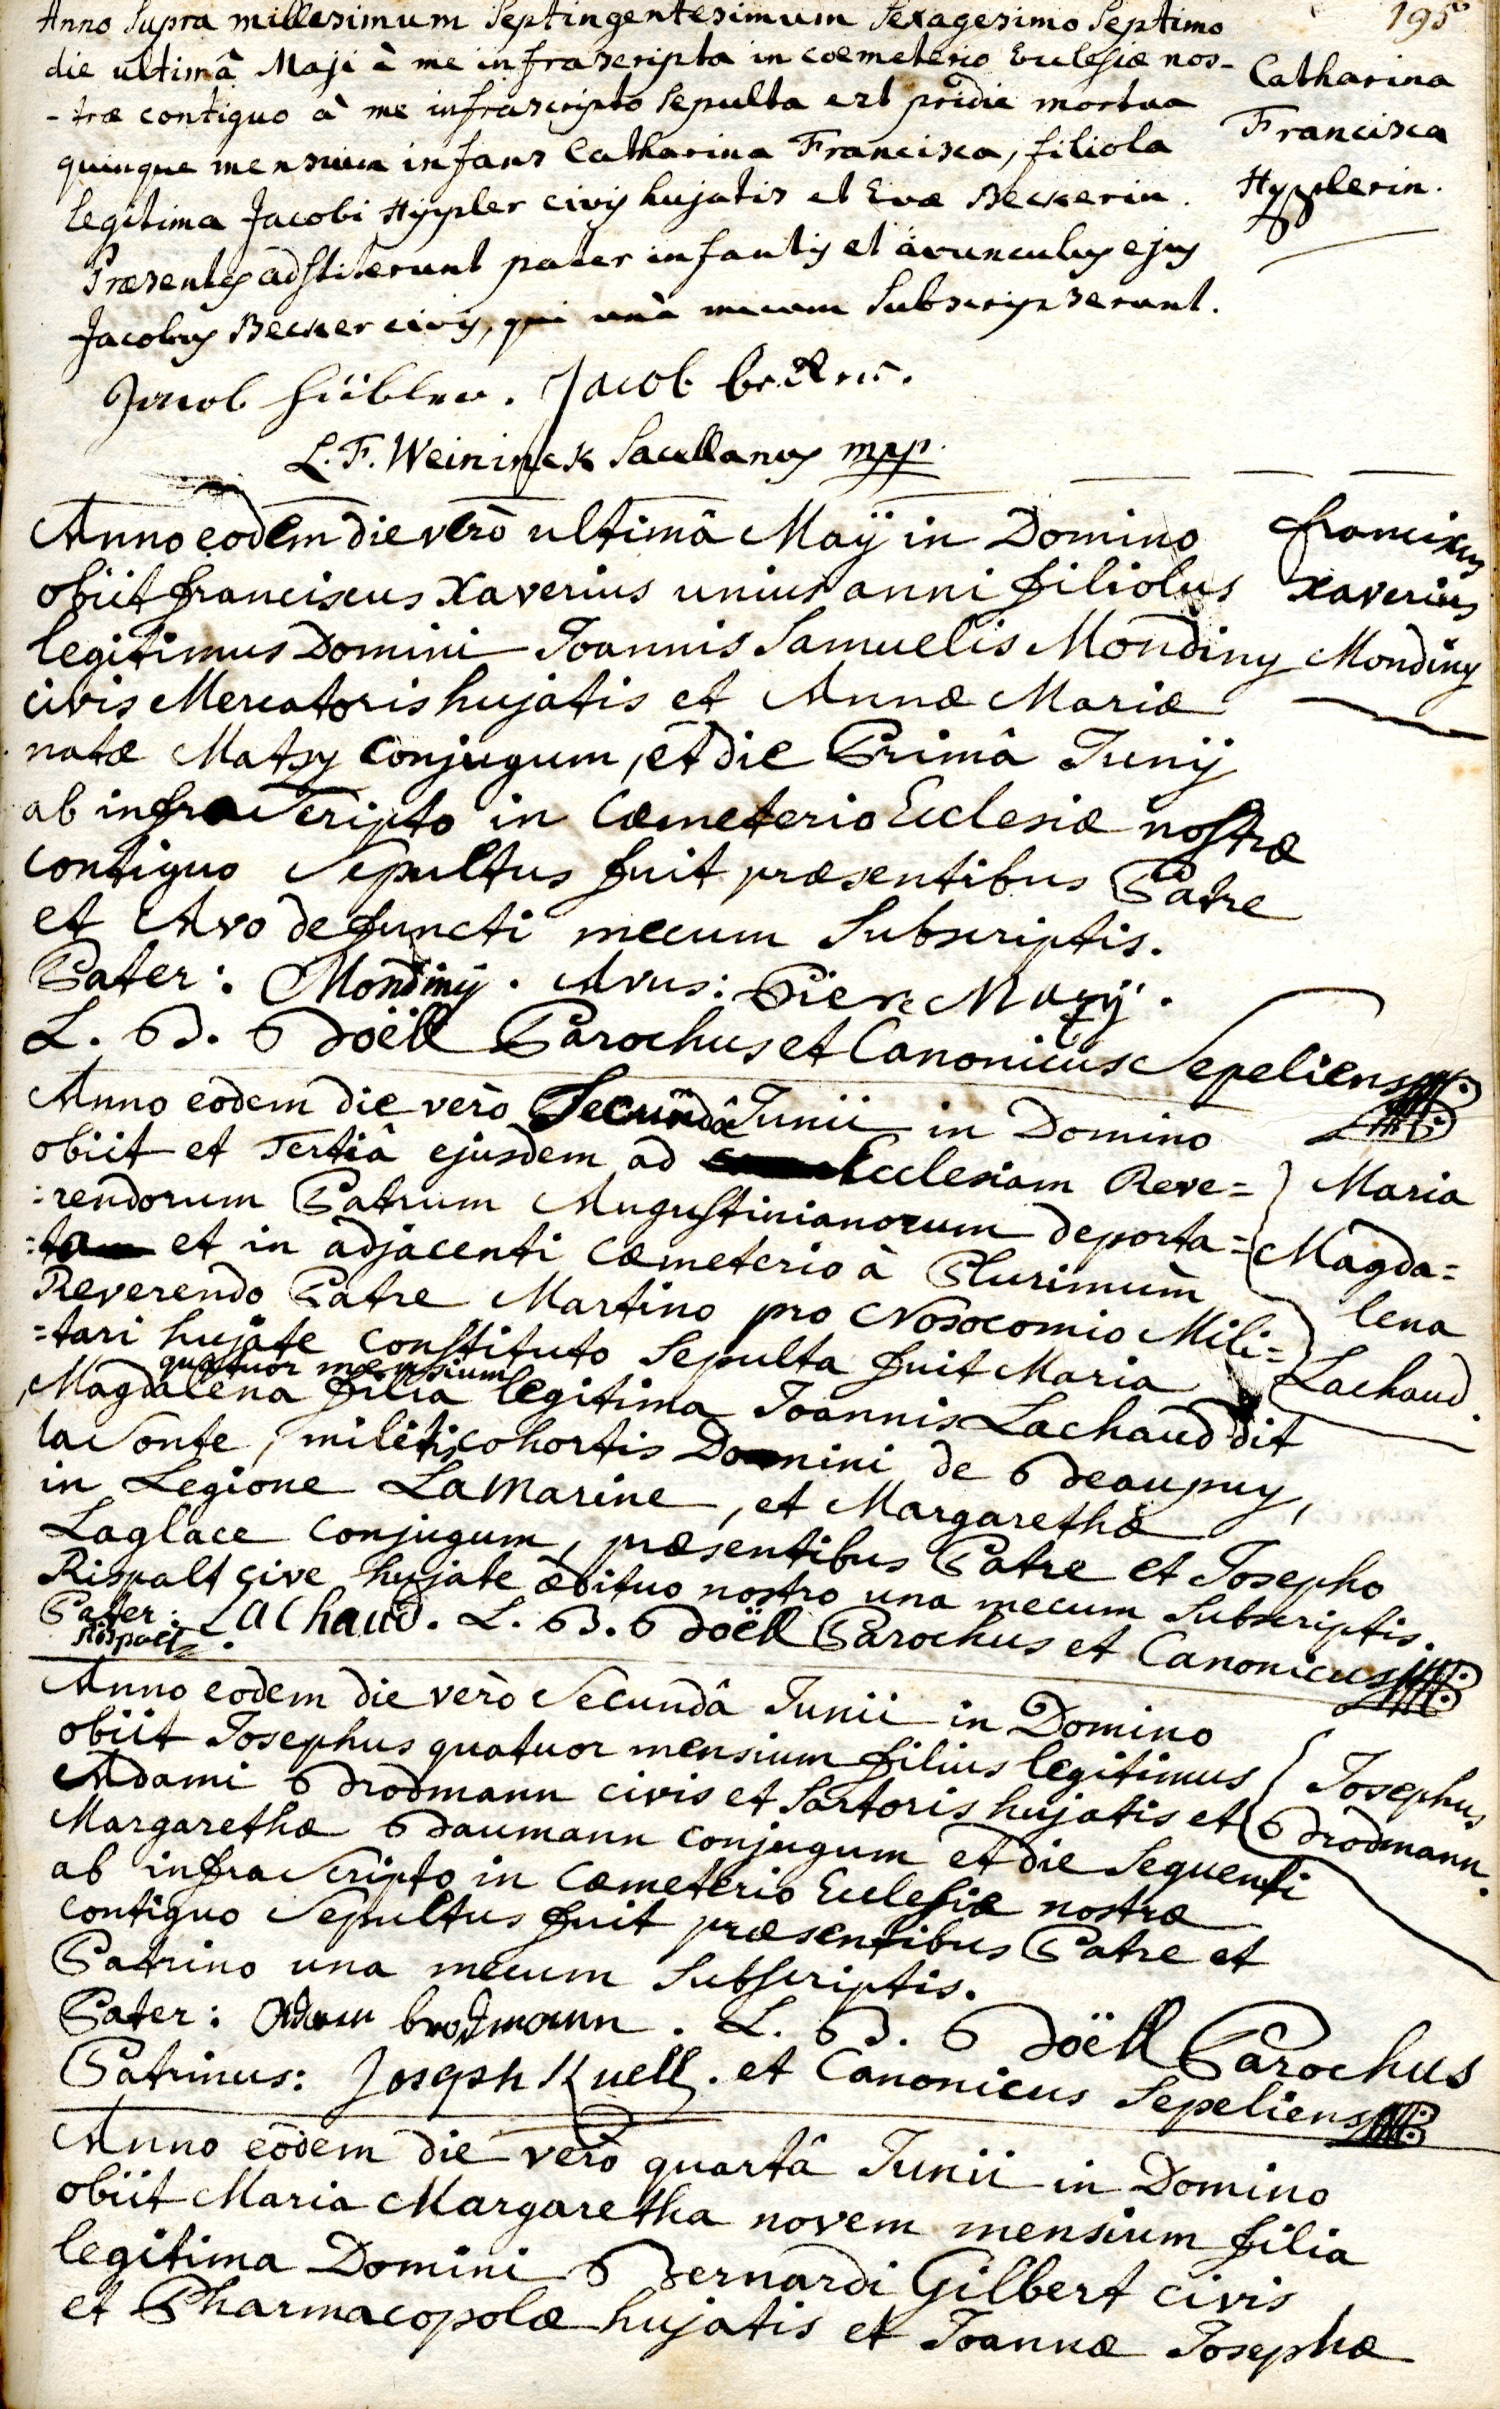 195
Anno Supra millesimum Septingentesimum Sexagesimo Septimo
die ultimâ Maji à me infrascripta in coemeterio Ecclesiæ nos-
-træ contiguo à me infrascripto Sepulta est pridie mortua
quinque mensium infans Catharina Francisca, filiola
legitima Jacobi Hyppler civis hujatis et Evæ Beckerin.
Præsentes adstiterunt pater infantis et avunculus ejus
Jacobus Becker civis, qui unà mecum Subscripserunt.
Catharina
Francisca
Hypplerin.
Jacob hübler. Jacob becker.
L. F. Weininck Sacellanus mpp.
Anno eodem die verò ultimâ Maÿ in Domino
obiit franciscus Xaverius unius anni filiolus
legitimus Domini Joannis Samuelis Mondiny
civis Mercatoris hujatis et Annæ Mariæ
natæ Matzy conjugum, et die Primâ Junÿ
ab infrascripto in Cœmeterio Ecclesiæ nostræ
contiguo Sepultus fuit præsentibus Patre
et Avo defuncti mecum Subscriptis.
franciscus
Xaverius
Mondiny
Pater: Mondinÿ. Avus: Pier Mazÿ.
L. B. Boëll Parochus et Canonicus Sepeliens
Anno eodem die verò Secundâ Junii in Domino
obiit et Tertiâ ejusdem ad Ecclesiam Reve=
=rendorum Patrum Augustinianorum deporta=
=ta et in adjacenti cœmeterio à Plurimum
Reverendo Patre Martino pro Nosocomio Mili=
=tari hujate constituto Sepulta fuit Maria
quatuor mensium
Magdalena filia legitima Joannis Lachaud dit
la Sonte, militis cohortis Domini de Beaupuy,
in Legione La Marine, et Margarethæ
Laglace conjugum, præsentibus Patre et Josepho
Rispalt cive hujate ædituo nostro una mecum Subscriptis.
Maria
Magda=
lena
Lachaud.
Pater: Lachaud. L. B. Boëll Parochus et Canonicus
Rispalt.
Anno eodem die verò Secundâ Junii in Domino
obiit Josephus quatuor mensium filius legitimus
Adami Brodmann civis et Sartoris hujatis et
Margarethæ Baumann conjugum et die Sequenti
ab infrascripto in Cœmeterio Ecclesiæ nostræ
contiguo Sepultus fuit præsentibus Patre et
Patrino una mecum Subscriptis.
Josephus
Brodmann.
Pater: Adam brodmann. L. B. Boëll Parochus
Patrinus: Joseph Kuell. et Canonicus Sepeliens
Anno eodem die verò quartâ Junii in Domino
obiit Maria Margaretha novem mensium filia
legitima Domini Bernardi Gilbert civis
et Pharmacopolæ hujatis et Joannæ Josephæ